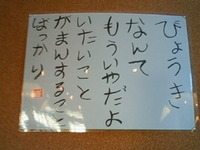 びょうき
なんて
もういやだよ
いたいこと
がまんすること
ばっかり